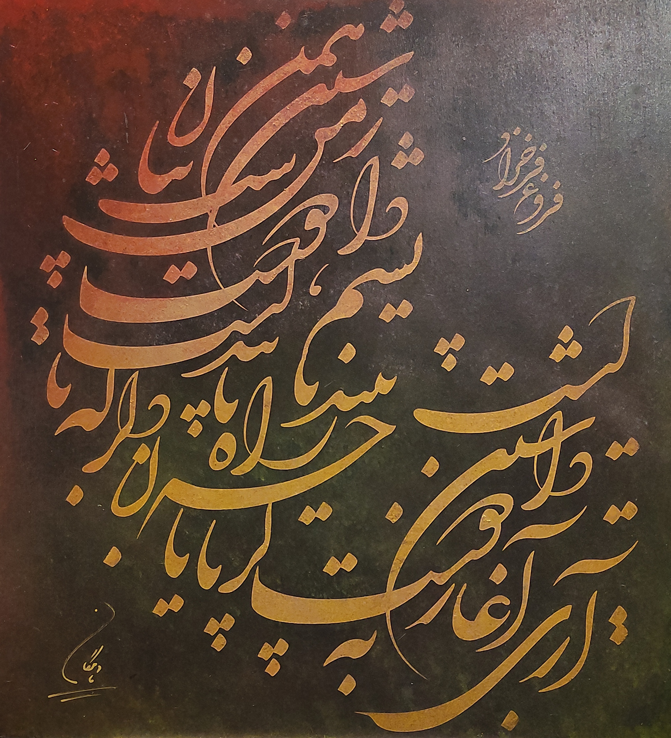 فروغ فرخزاد
آری آغاز دوست داشتن است
گرچه پایان راه ناپیداست
من به پایان دگر نیندیشم
که همین دوست داشتن زیباست